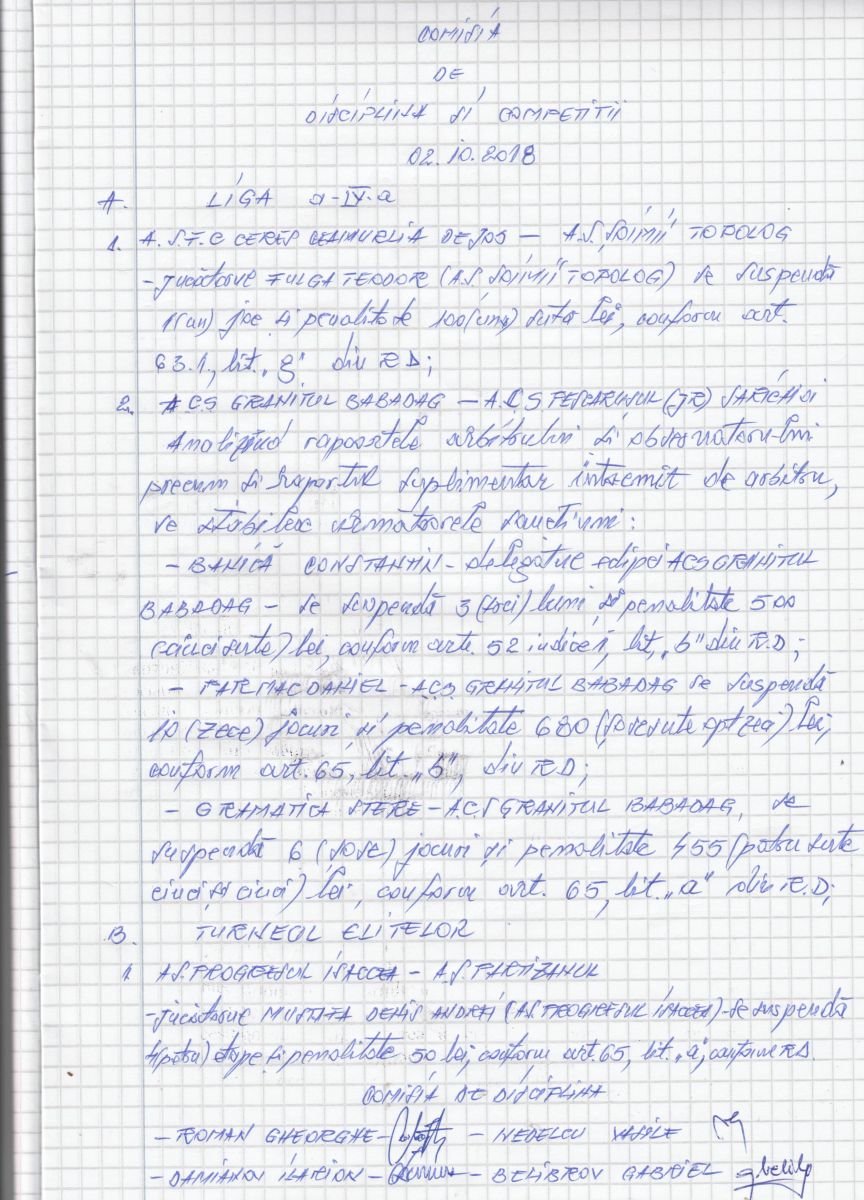 COMISIA
DE
DISCIPLINA SI COMPETITII
02.10.2018
A. LIGA a-IV-a
1. A.S.T.C CERES CEAMURLIA DE JOS — A.S. "ȘOIMII" TOPOLOG
- Jucătorul FULGA TEODOR (A.S. ȘOIMII" TOPOLOG) se suspendă
1(un) joc și penalitate 100(una) suta lei, conform art.
63.1, lit. „g" din R.D;
2. ACS GRANITUL BABADAG — A.C.S PESCARUSUL (JR) SARICHIOI
Analizând rapoartele arbitrului și observatorului
precum și raportul suplimentar întocmit de arbitru,
se stabilesc următoarele sancțiuni:
- BANICĂ CONSTANTIN - delegatul echipei ACS GRANITUL
BABADAG - se suspendă 3 (trei) luni și penalitate 500
(cinci sute) lei, conform art. 52 indice 1, lit. „b" din R.D;
- PARMAC DANIEL - ACS GRANITUL BABADAG se suspendă
10 (zece) jocuri și penalitate 680 (șasesute optzeci) lei,
conform art. 65, lit. „b", din R.D;
- GRAMATICA STERE - A.C.S GRANITUL BABADAG, se
suspendă 6 (șase) jocuri și penalitate 455 (patru sute
cinci și cinci) lei, conform art. 65, lit. „a" din R.D;
B. TURNEUL ELITELOR
1. AS. PROGRESUL ISACCEA - A.S. PARTIZANUL
- Jucătorul MUSTAFA DENIS ANDREI (AS. PROGRESUL ISACCEA) - se suspendă
4(patru) etape și penalitate 50 lei, conform art. 65, lit. „a", conform R.D.
COMISIA DE DISCIPLINA
- ROMAN GHEORGHE - - NEDELCU VASILE
- DAMIANOV ILARION - - BELIBROV GABRIEL